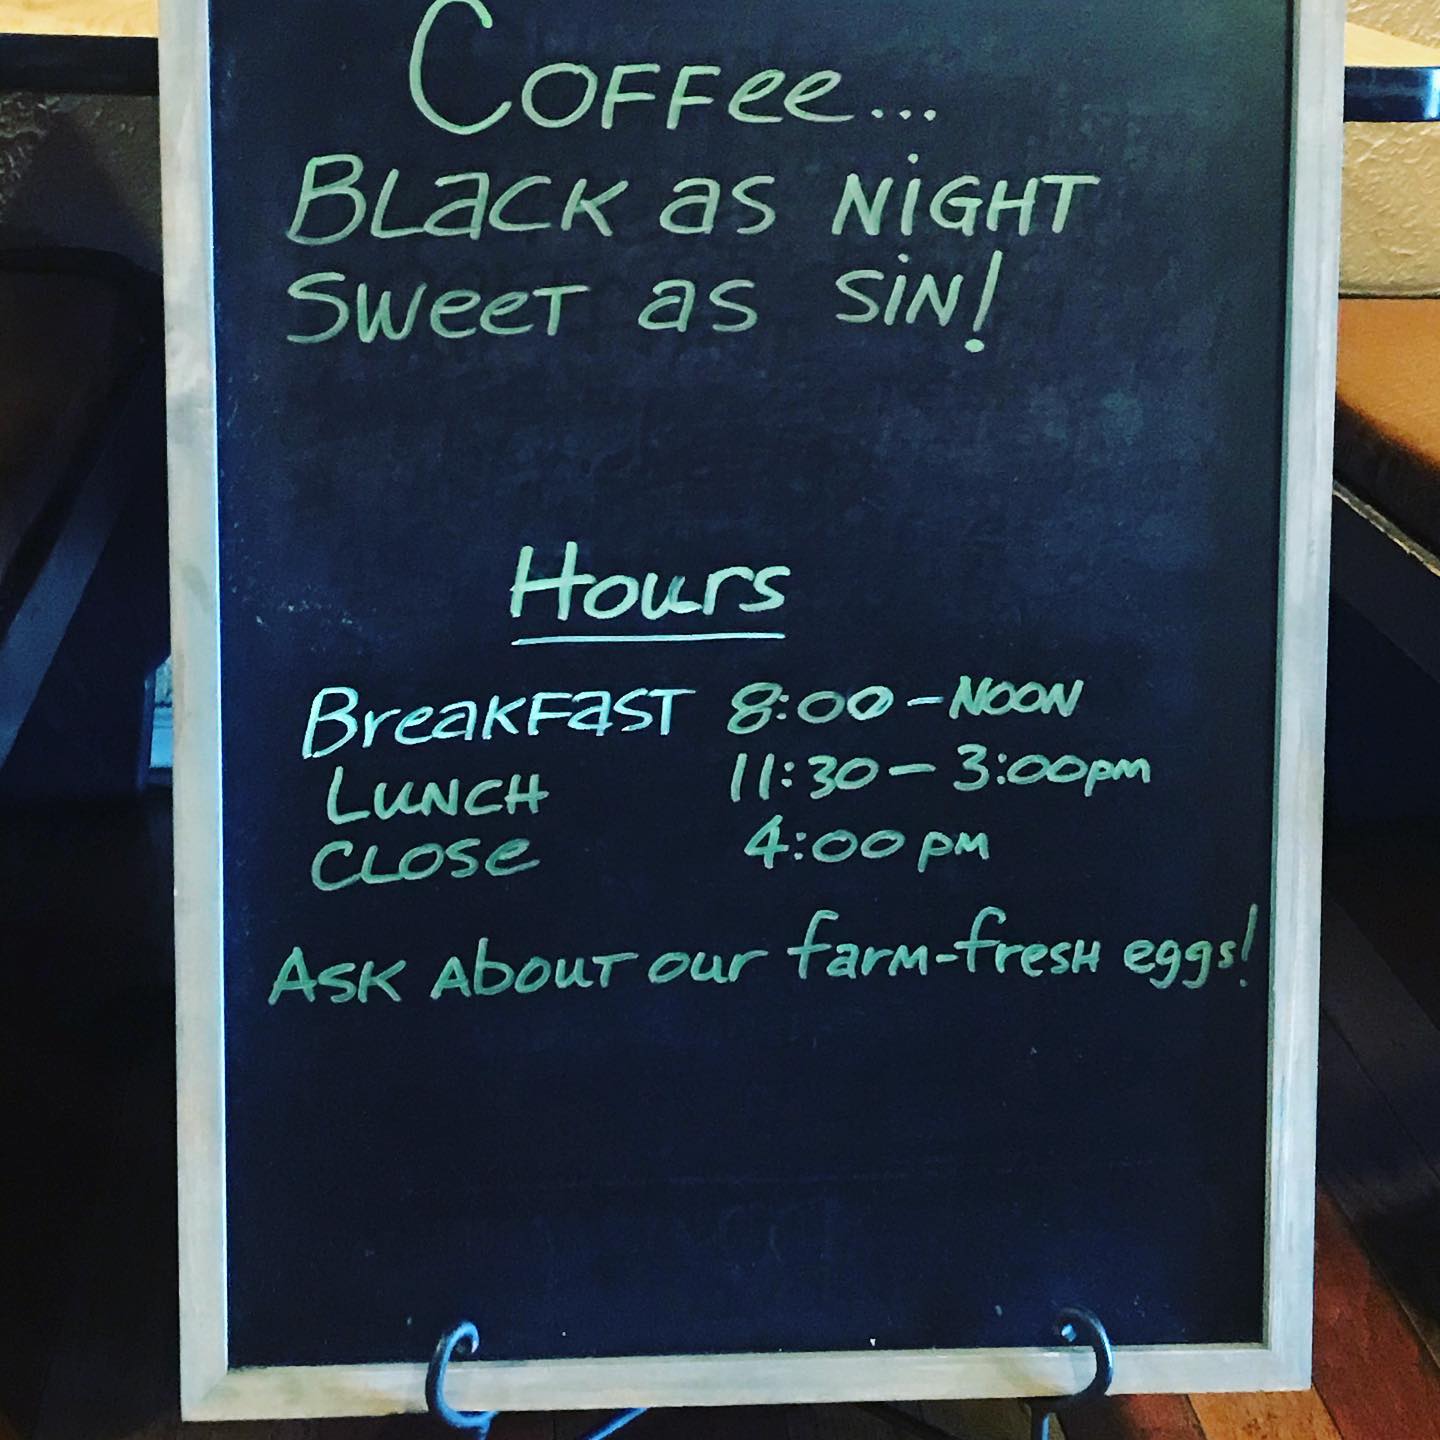 Coffee...
Black as Night
Sweet as Sin!
Hours
Breakfast 8:00 - Noon
Lunch 11:30 - 3:00pm
Close 4:00 pm
Ask About our farm-fresh eggs!